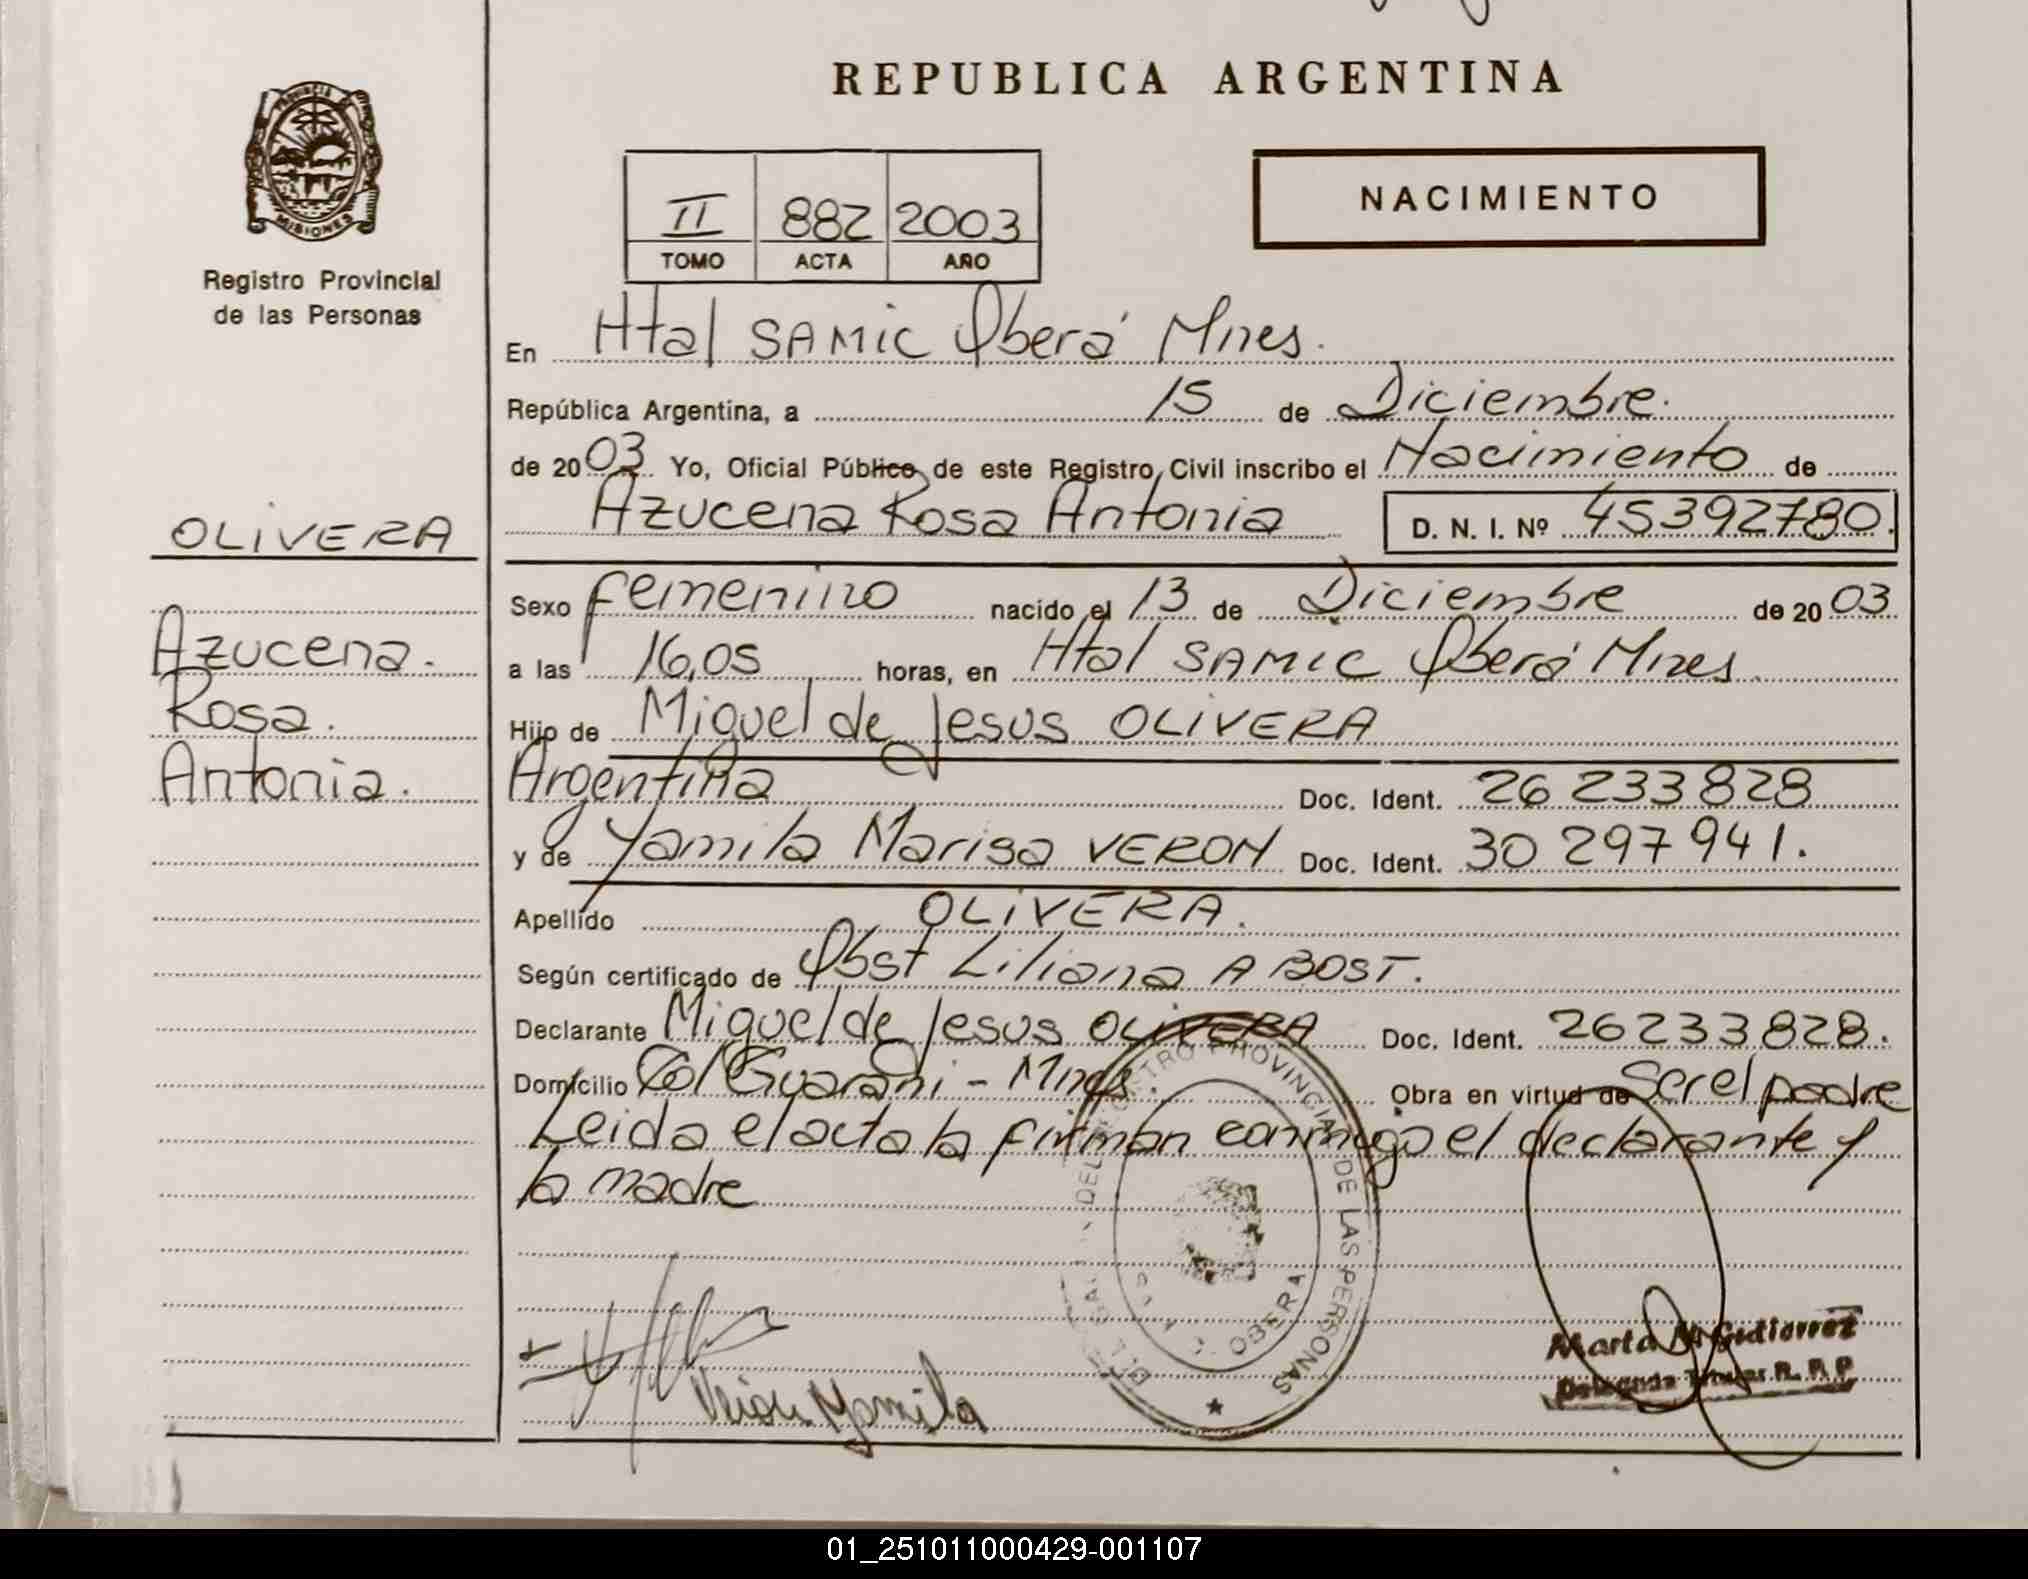 REPUBLICA ARGENTINA
PROVINCIA DE
MISIONES
Registro Provincial
de las Personas
II 882 2003
TOMO ACTA AÑO
NACIMIENTO
En Htal SAMIC Oberá Mnes.
República Argentina, a 15 de Diciembre.
de 2003 Yo, Oficial Público de este Registro Civil inscribo el Nacimiento de
Azucena Rosa Antonia D. N. I. Nº 45392780.
OLIVERA
Azucena.
Rosa.
Antonia.
Sexo femenino nacido el 13 de Diciembre de 2003
a las 16,05 horas, en Htal SAMIC Oberá Mnes.
Hijo de Miguel de Jesus OLIVERA
Argentina Doc. Ident. 26 233 828
y de Yamila Marisa VERON Doc. Ident. 30 297 941.
Apellido OLIVERA.
Según certificado de Obst Liliana A BOST.
Declarante Miguel de Jesus OLIVERA Doc. Ident. 26233828.
Domicilio Col Guarani - Mnes. Obra en virtud de Ser el padre
Leida el acta la firman conmigo el declarante y
la madre
REGISTRO PROVINCIAL DE LAS PERSONAS
OBERA
Yamila
Marta M Gutierrez
Delegada Titular R. P. P
01_251011000429-001107